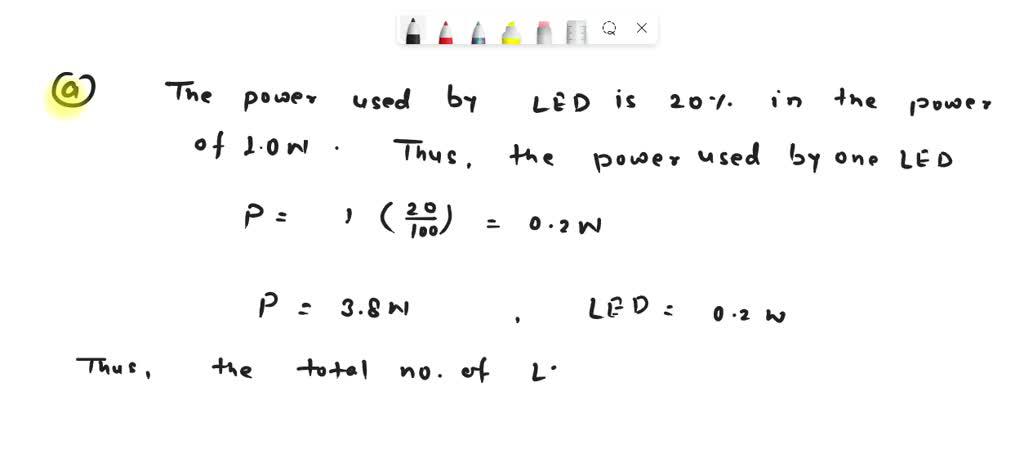 (a) The power used by LED is 20% in the power
of 1.0W. Thus, the power used by one LED
P = 1 (20/100) = 0.2W
P = 3.8W , LED = 0.2 W
Thus, the total no. of L.